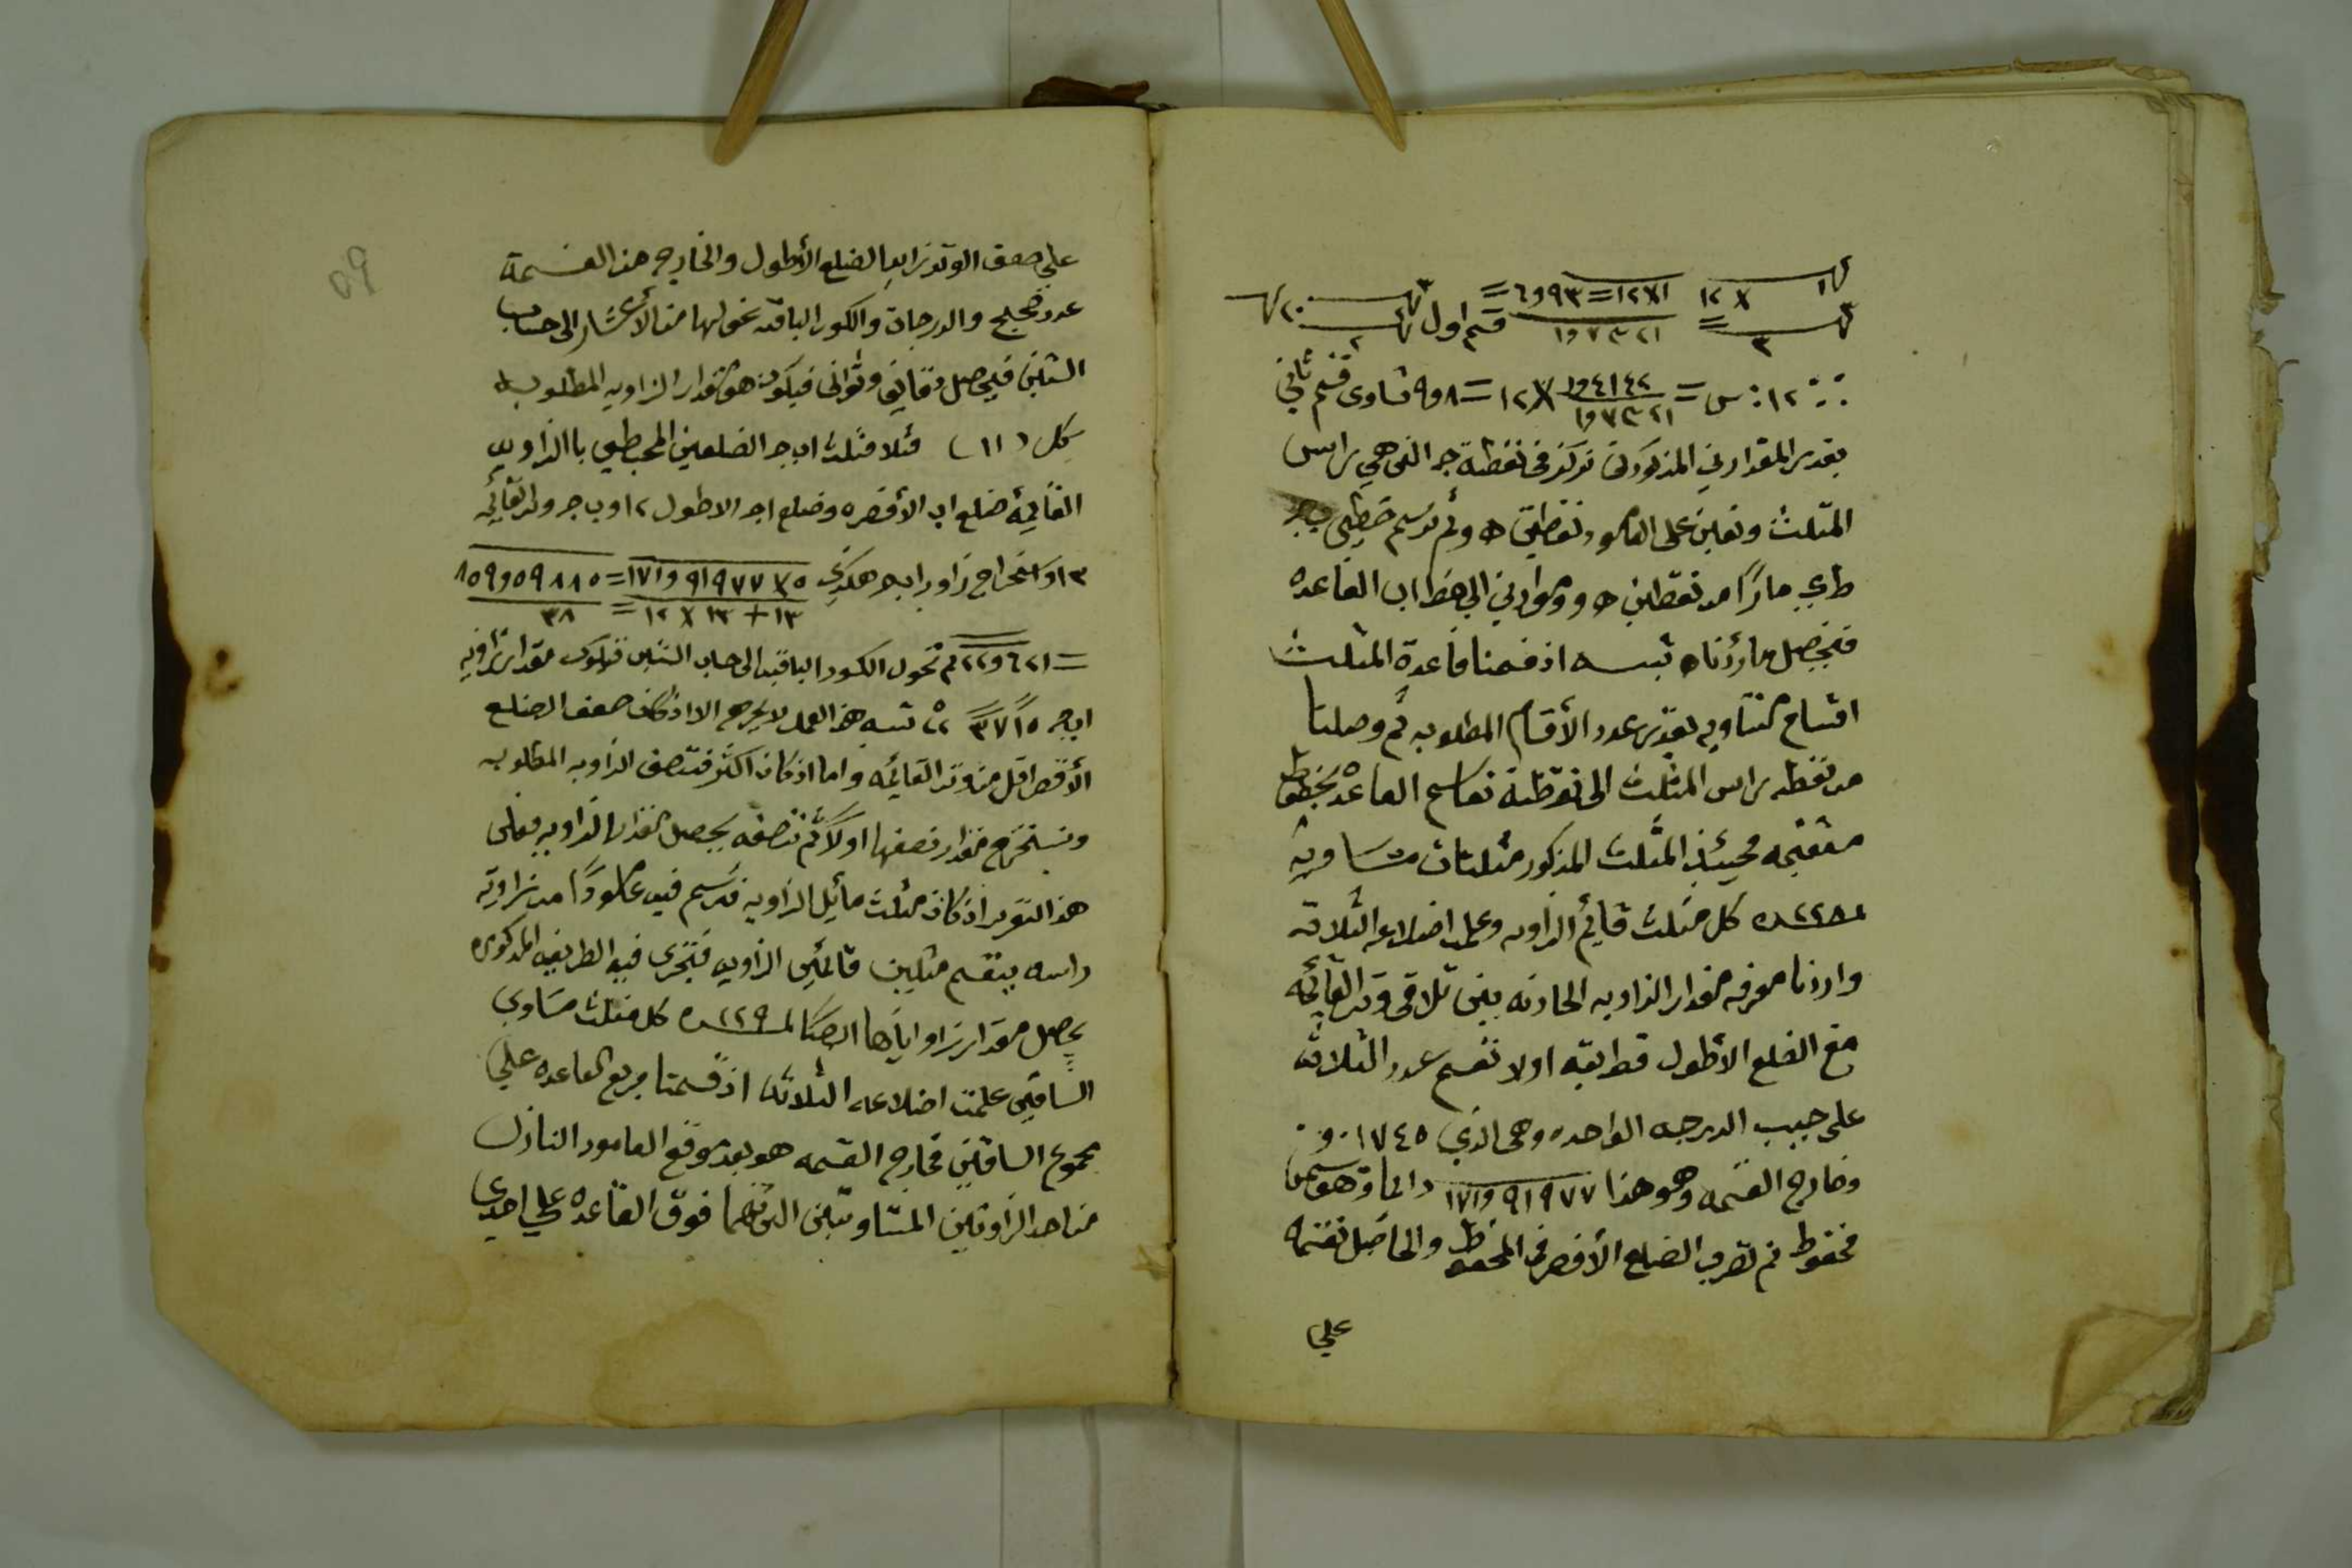 ١٢ × ١ = ١٢×١ = ٦و٩٣ =
٣ = ١و٧٣٢١ قسم اول
∴ ١٢ : س = ١و٤١٤٢ × ١٢ = ٩و٨ تساوى قسم ثاني
١و٧٣٢١
بقدر المقدارين المذكورين نركز في نقطة جـ التي هي راس
المثلث ونعين على العامود نقطتين ه و ثم نرسم خطين
ط ي مارًا من نقطتين ه و وموازين الى خط اب القاعده
فتحصل ما اردناه تنبيه اذ قسمنا قاعدة المثلث
اقسام متساويه بقدر عدد الأقسام المطلوبه ثم وصلنا
من نقطه راس المثلث الى نقطة تقاسيم القاعده بخطوط
مستقيمه فحينئذ المثلث المذكور مثلثات متساويه
كل مثلث قايم الزاويه وعلمت اضلاعه الثلاثه
واردنا معرفه مقدار الزاويه الحادثه بين تلاقى وتر القائمه
مع الضلع الأطول فطريقه اولا نقسم عدد الثلاثه
على جيب الدرجه الواحده وهي الذي ٠و٠١٧٤٥
وخارج القسمه وهو هذا ١٧١و٩١٩٧٧
محفوظ ثم تضرب الضلع الأقصر في المحفوظ والحاصل نقسمه
على
٥٩
على ضعف الوتر زايد الضلع الأطول والخارج من القسمة
عدد صحيح والدرجات والكسور الباقيه نحولها من الأعشار الى حساب
الستين فيحصل دقايق وثواني فيكون هو مقدار الزاويه المطلوبه
شكل (١١) فثلا مثلث اب جـ الضلعين المحيطين باالزاويه
القايمة ضلع اب الأقصر ٥ وضلع اجـ الاطول ١٢ وب جـ وتر القايمه
١٣ واستخراج زاويه ابجـ هكذي ١٧١و٩١٩٧٧×٥ = ٨٥٩و٥٩٨٨٥
١٣+١٣×١٢ = ٣٨
= ٢٢و٦٢١ ثم تحول الكسور الباقيه الى حساب الستين فتكون مقدار زاويه
ابجـ ١٥ ٣٧ ٢٢ تنبيه هذا العمل لا يخرج الا اذ كان ضعف الضلع
الأقصر اقل من وتر القائمه واما اذ كان اكثر فتنصف الزاويه المطلوبه
ونستخرج مقدار نصفها اولاً ثم نضعفه يحصل مقدار الزاويه فعلى
هذا التقرير اذ كان مثلث مائل الزاويه فترسم فيه عامودًا من زاوية
راسه ينقسم مثلثين قائمين الزاويه فتجرى فيه الطريقه المذكوره
يحصل مقدار زاواياها ايضًا كل مثلث متساوي
الساقين علمت اضلاعه الثلاثه اذ قسمنا مربع القاعده على
مجموع الساقين فخارج القسمه هو بعد موقع العامود النازل
من احد الزاويتين المتساويتين اللتيهما فوق القاعده على احدى